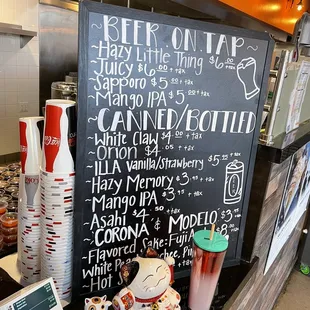 BEER ON TAP
~Hazy Little Thing
Juicy $6.00 + tax
Sapporo $5.00 + tax
Mango IPA $5.00
CANNED/BOTTLED
~White Claw $4.00 + tax
~Orion $4. + tax
~ILLA Vanilla/Strawberry $5.00 + tax
~Hazy Memory $3. + tax
~Mango IPA $3. + tax
~Asahi $4.50 + tax
~CORONA & MODELO $3
~Flavored Sake: Fuji $8.00
white Peach
Hot